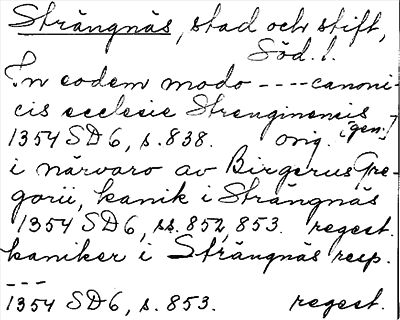 Strängnäs, stad och stift,
Söd. l.
In eodem modo ---- canoni-
cis ecclesie Strenginensis
[gen.]
1354 SD6, s. 838. orig.
i närvaro av Birgerus Gre-
gorii, kanik i Strängnäs
1354 SD6, ss. 852, 853. regest.
kaniker i Strängnäs resp.
---
1354 SD6, s. 853. regest.